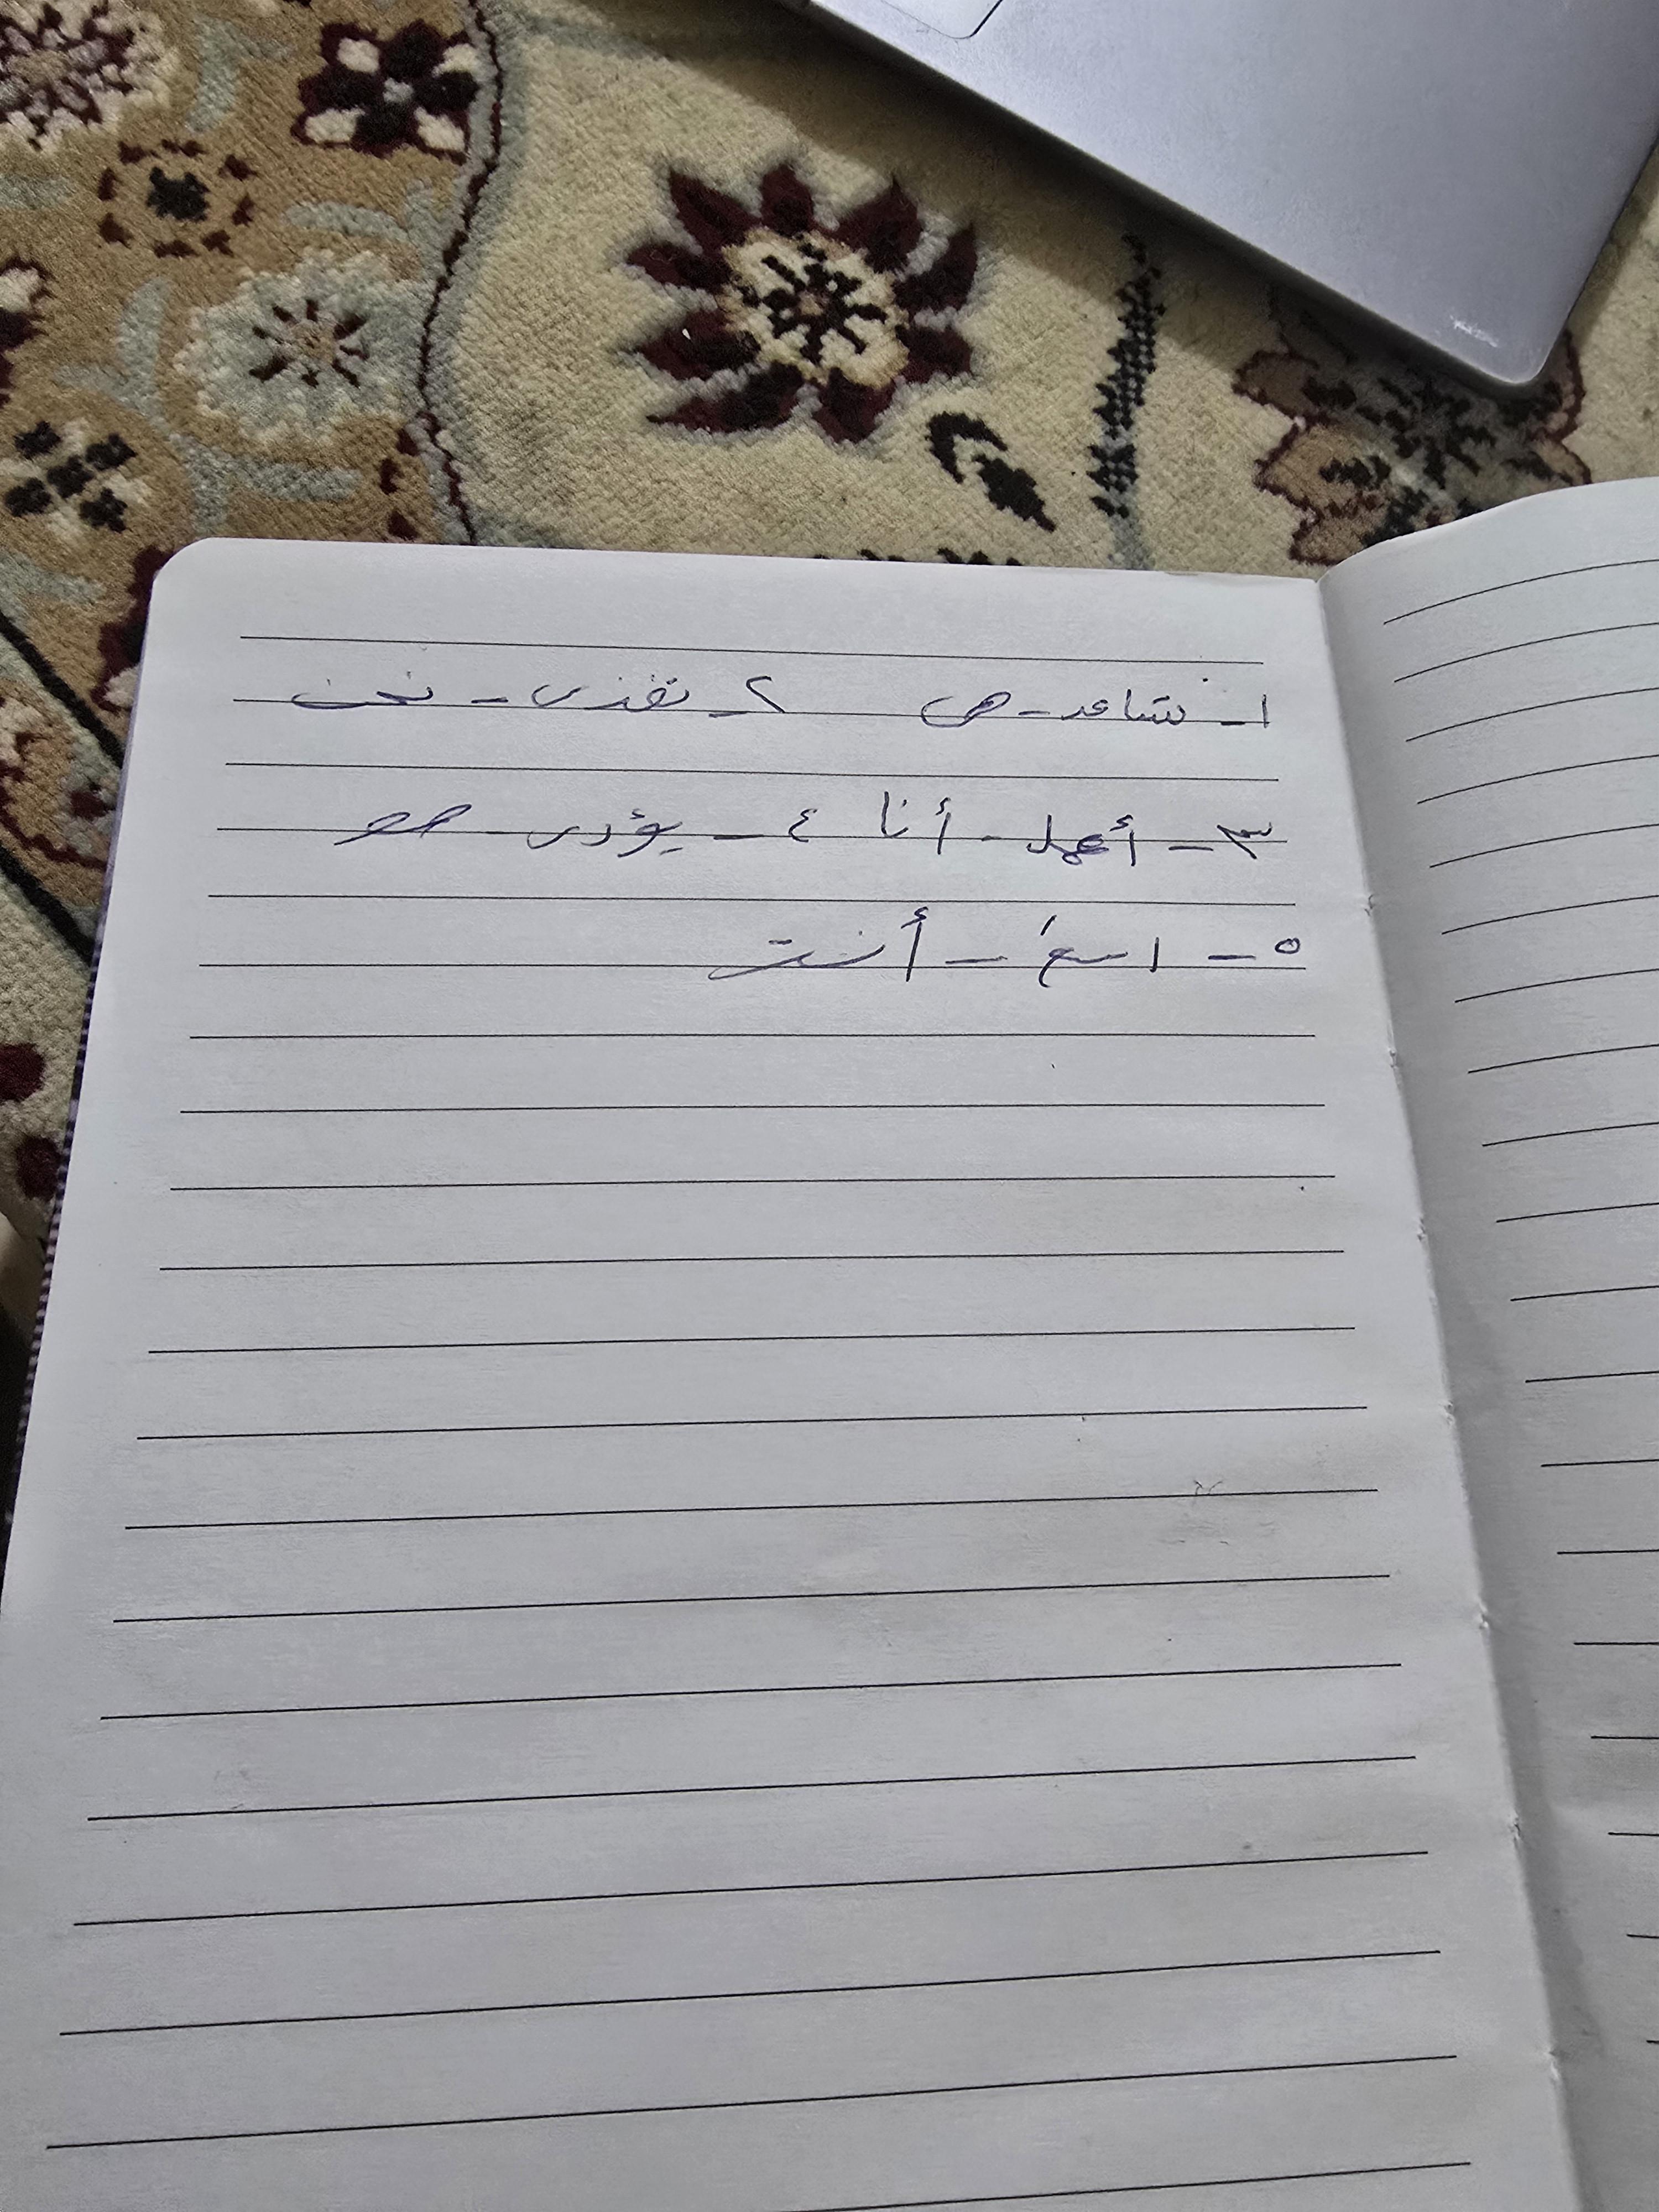 ١- تساعد - هى ٢- نفذى - نحن
٣- أعمل - أنا ٤- يؤدى - هو
٥- اسعَ - أنت